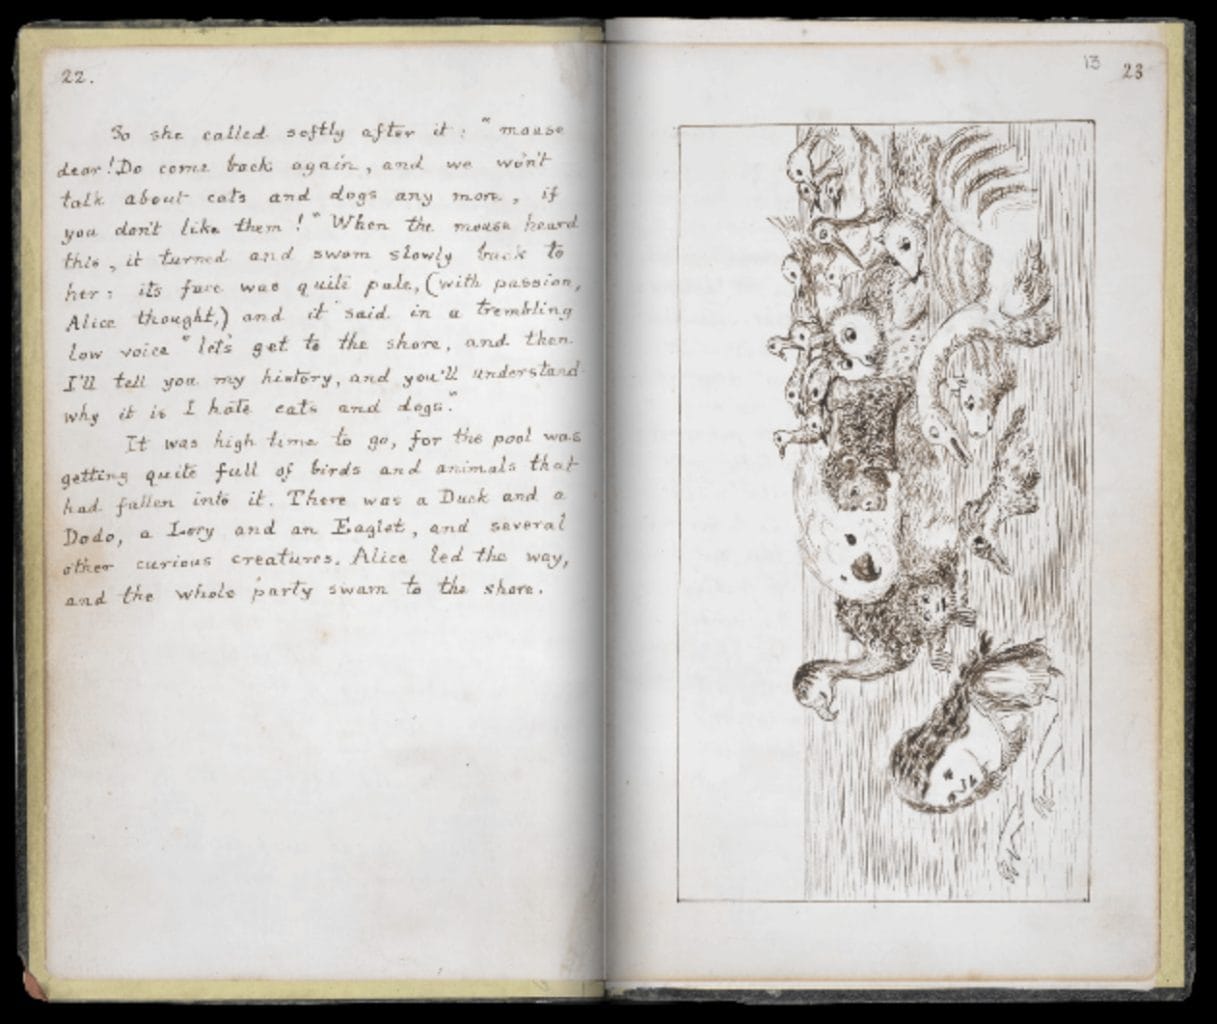 22.
So she called softly after it: "mouse
dear! Do come back again, and we won't
talk about cats and dogs any more, if
you don't like them!" When the mouse heard
this, it turned and swam slowly back to
her: its face was quite pale, (with passion,
Alice thought,) and it said in a trembling
low voice "let's get to the shore, and then
I'll tell you my history, and you'll understand
why it is I hate cats and dogs."
It was high time to go, for the pool was
getting quite full of birds and animals that
had fallen into it. There was a Duck and a
Dodo, a Lory and an Eaglet, and several
other curious creatures. Alice led the way,
and the whole party swam to the shore.
13 23